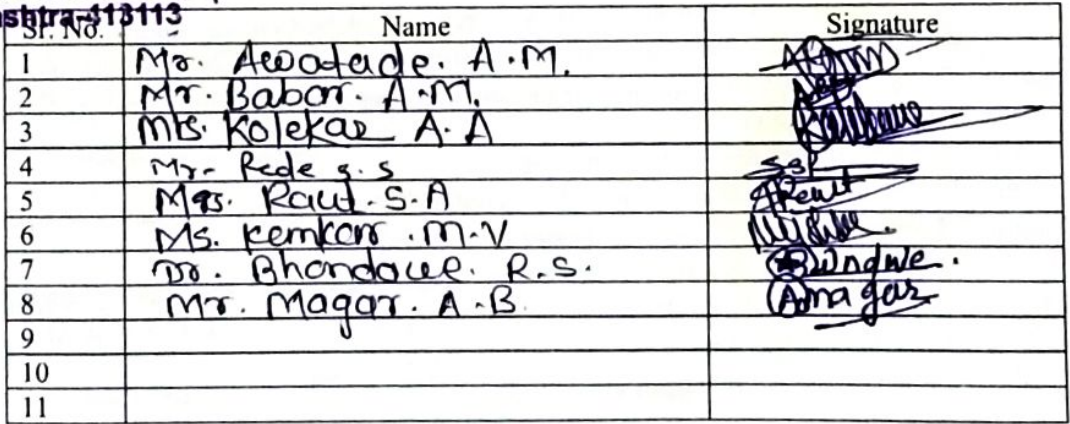 shtra-413113
Sr. No. Name Signature
1 Mr. Awatade. A.M.
2 Mr. Babar. A.M.
3 Mrs. Kolekar A. A
4 Mr. Rede s. s
5 Mrs. Raut. S. A
6 Ms. Kemkar. M.V
7 Dr. Bhandawe. R.S.
8 Mr. Magar. A.B. Amagar
9
10
11